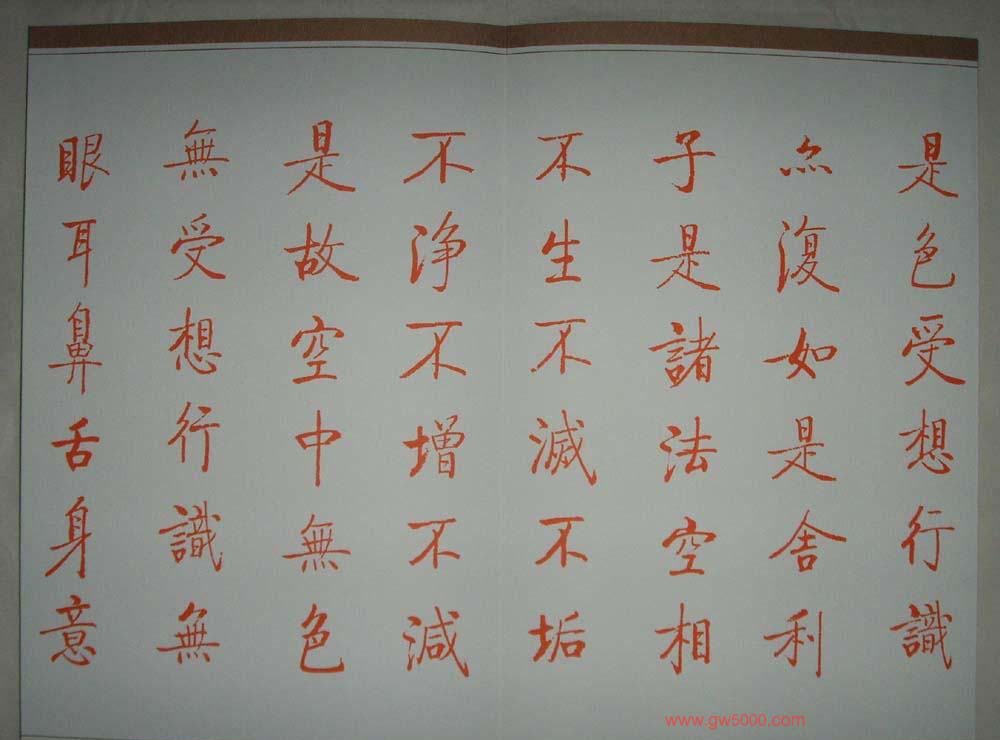 是色受想行識
亦復如是舍利
子是諸法空相
不生不滅不垢
不淨不增不減
是故空中無色
無受想行識無
眼耳鼻舌身意
www.gw5000.com